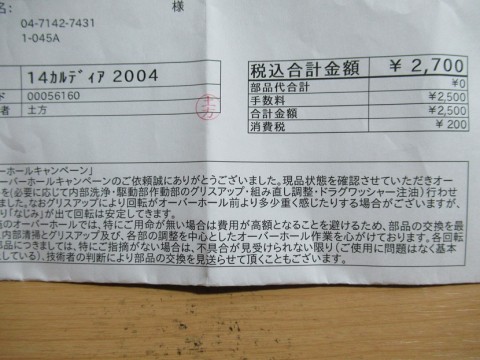 名:
様
04-7142-7431
1-045A
14カルディア 2004
ド 00056160
者 土方
土方
税込合計金額 ¥ 2,700
部品代合計 ¥0
手数料 ¥2,500
合計金額 ¥2,500
消費税 ¥ 200
ーホールキャンペーン」
ーバーホールキャンペーンのご依頼誠にありがとうございました。現品状態を確認させていただきオー
を(必要に応じて内部洗浄・駆動部作動部のグリスアップ・組み直し調整・ドラグワッシャー注油)行わせ
ました。なおグリスアップにより回転がオーバーホール前より多少重く感じたりする場合がございますが、
り「なじみ」が出て回転は安定してきます。
のオーバーホールでは、特にご用命が無い場合は費用が高額となることを避けるため、部品の交換を最
内部清掃とグリスアップ及び、各部の調整を中心としたオーバーホール作業を心がけております。各回転
部品につきましては、特にご指摘がない場合は、不具合が見受けられない限り(ご使用に問題はなく基本
している)、技術者の判断により部品の交換を見送らせて頂くこともございます。